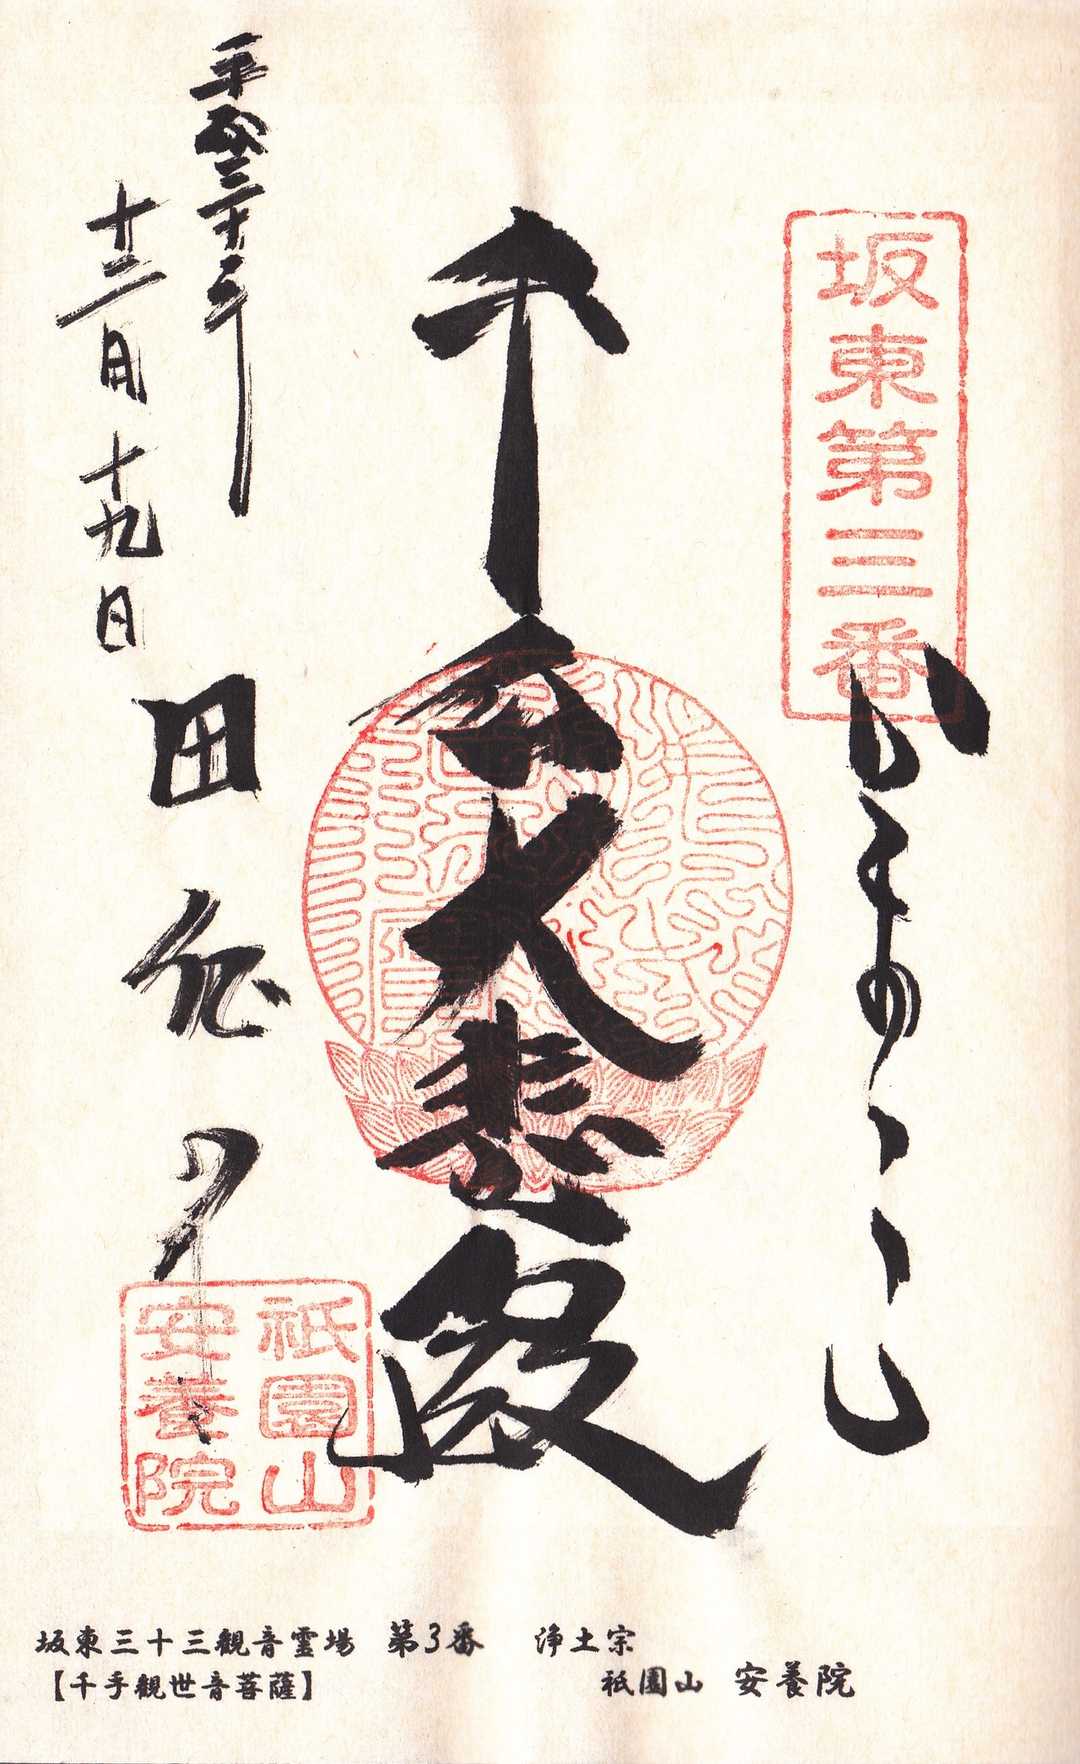 坂東第三番
千手大悲殿
平成二十二年
十二月十九日
田代寺
祇園山
安養院
坂東三十三観音霊場 第3番 浄土宗
【千手観世音菩薩】 祇園山 安養院